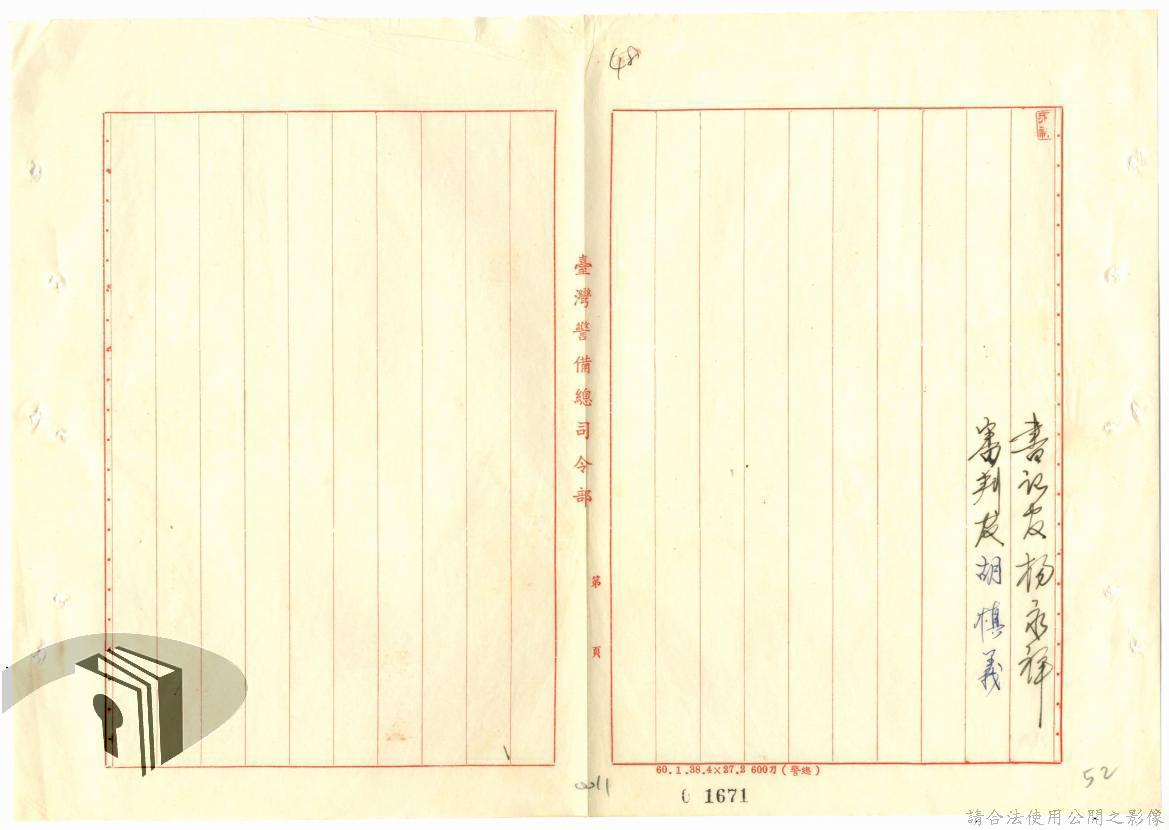 48
書記官楊永祥
審判官胡楨義
臺灣警備總司令部
第 頁
60.1.38.4×27.2 600刀(警總)
0011
0 1671
52
請合法使用公開之影像